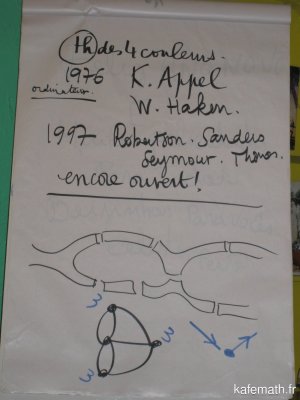 th des 4 couleurs.
1976 K. Appel
ordinateur W. Haken.
1997 Robertson. Sanders
Seymour. Thomas.
encore ouvert!
3
3
3
kafemath.fr